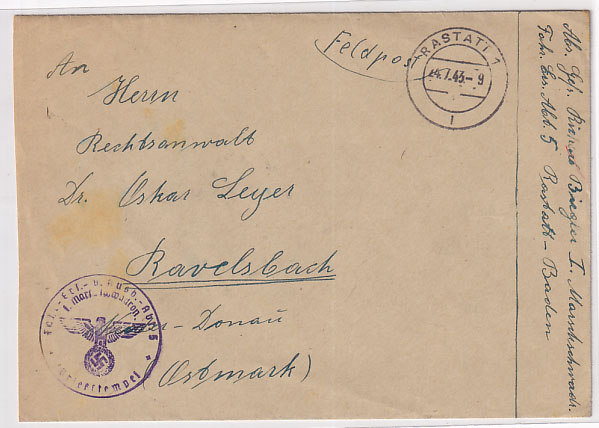 Feldpost
RASTATT 1
24.7.43-9
1
An
Herrn
Rechtsanwalt
Dr. Oskar Leyer
Ravelsbach
Donau
(Ostmark)
Fahr.-Ers.- u. Ausb.-Abt. 5
Briefstempel
Abs. I. Marscheschwadr.
Fahr. Ers. Abt. 5 Rastatt-Baden